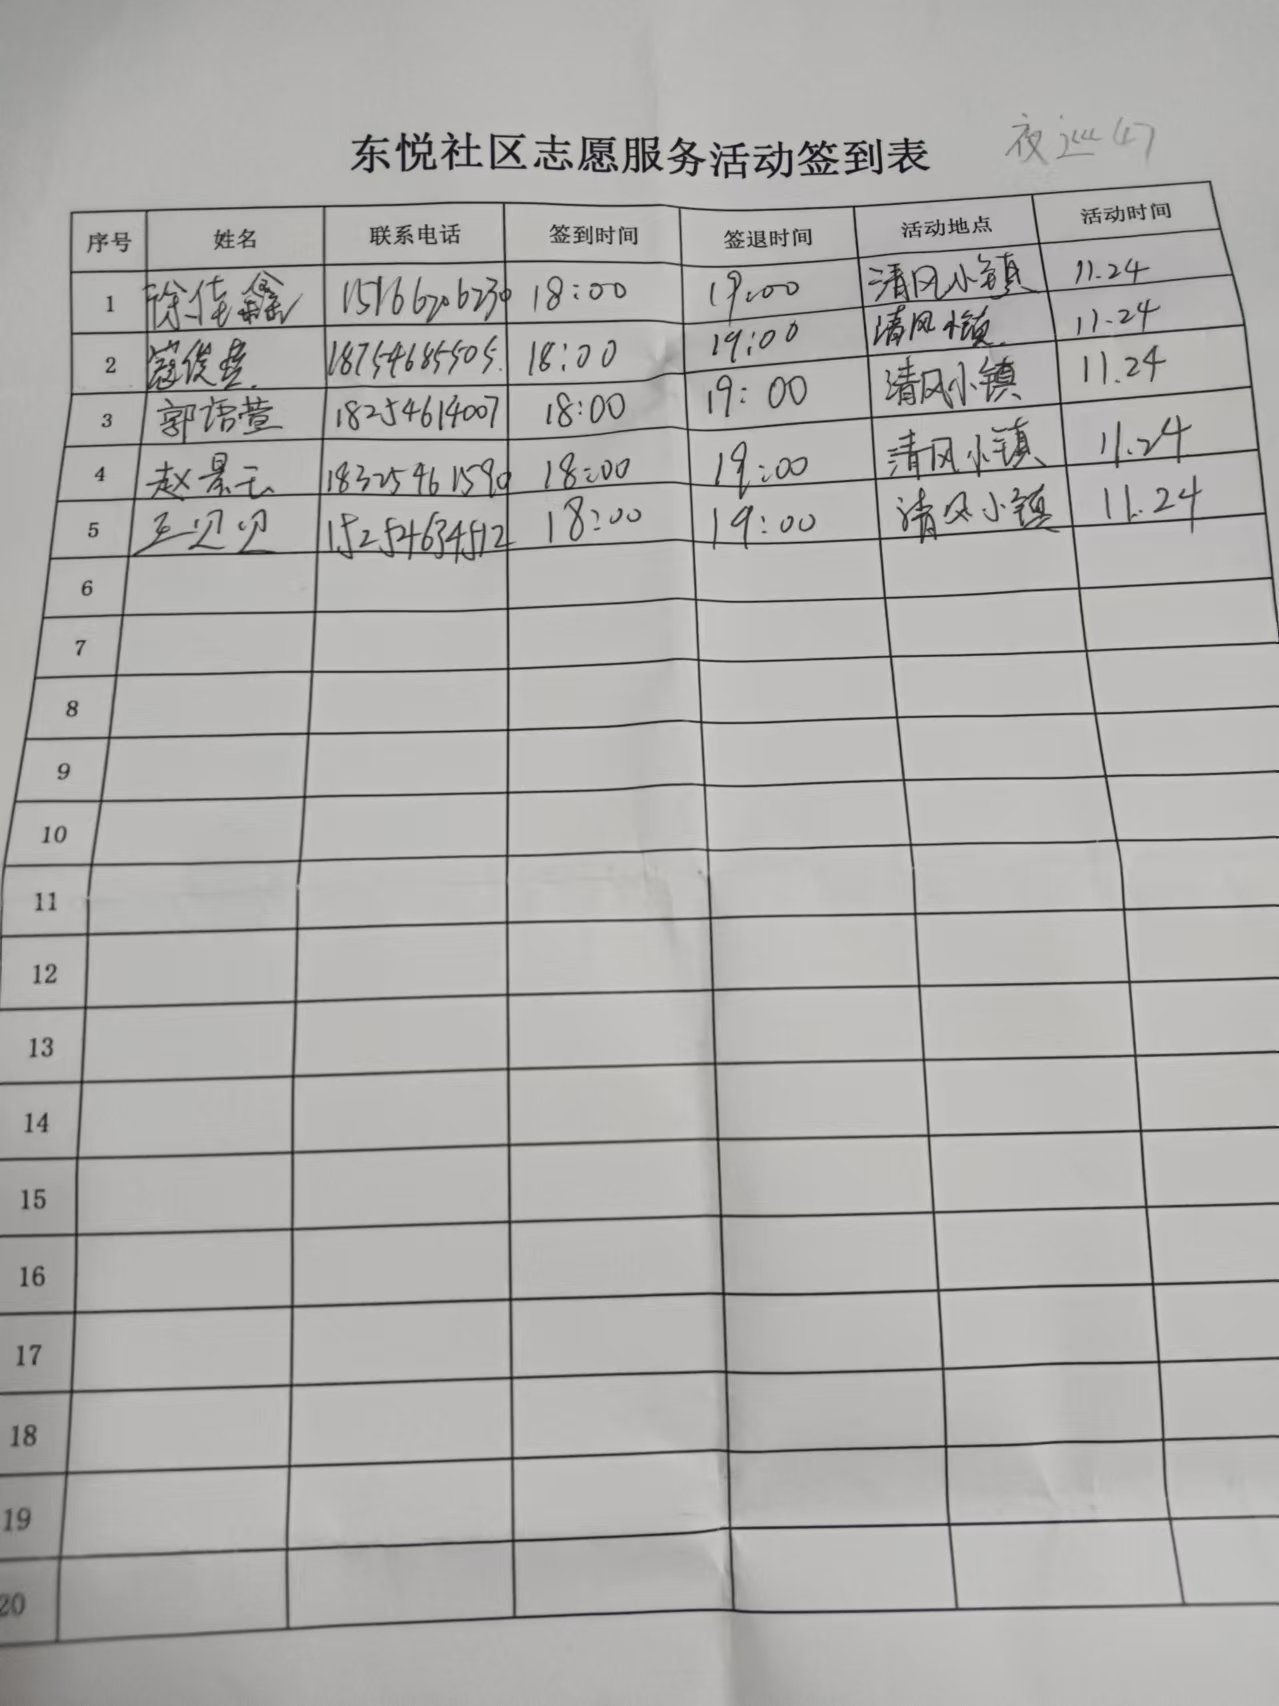 东悦社区志愿服务活动签到表 夜巡47
序号 姓名 联系电话 签到时间 签退时间 活动地点 活动时间
1 徐佳鑫 15166206230 18:00 19:00 清风小镇 11.24
2 18754685505 18:00 19:00 清风小镇 11.24
3 郭语萱 18254614007 18:00 19:00 清风小镇 11.24
4 赵景云 18325461590 18:00 19:00 清风小镇 11.24
5 王贝贝 15254634512 18:00 19:00 清风小镇 11.24
6
7
8
9
10
11
12
13
14
15
16
17
18
19
20